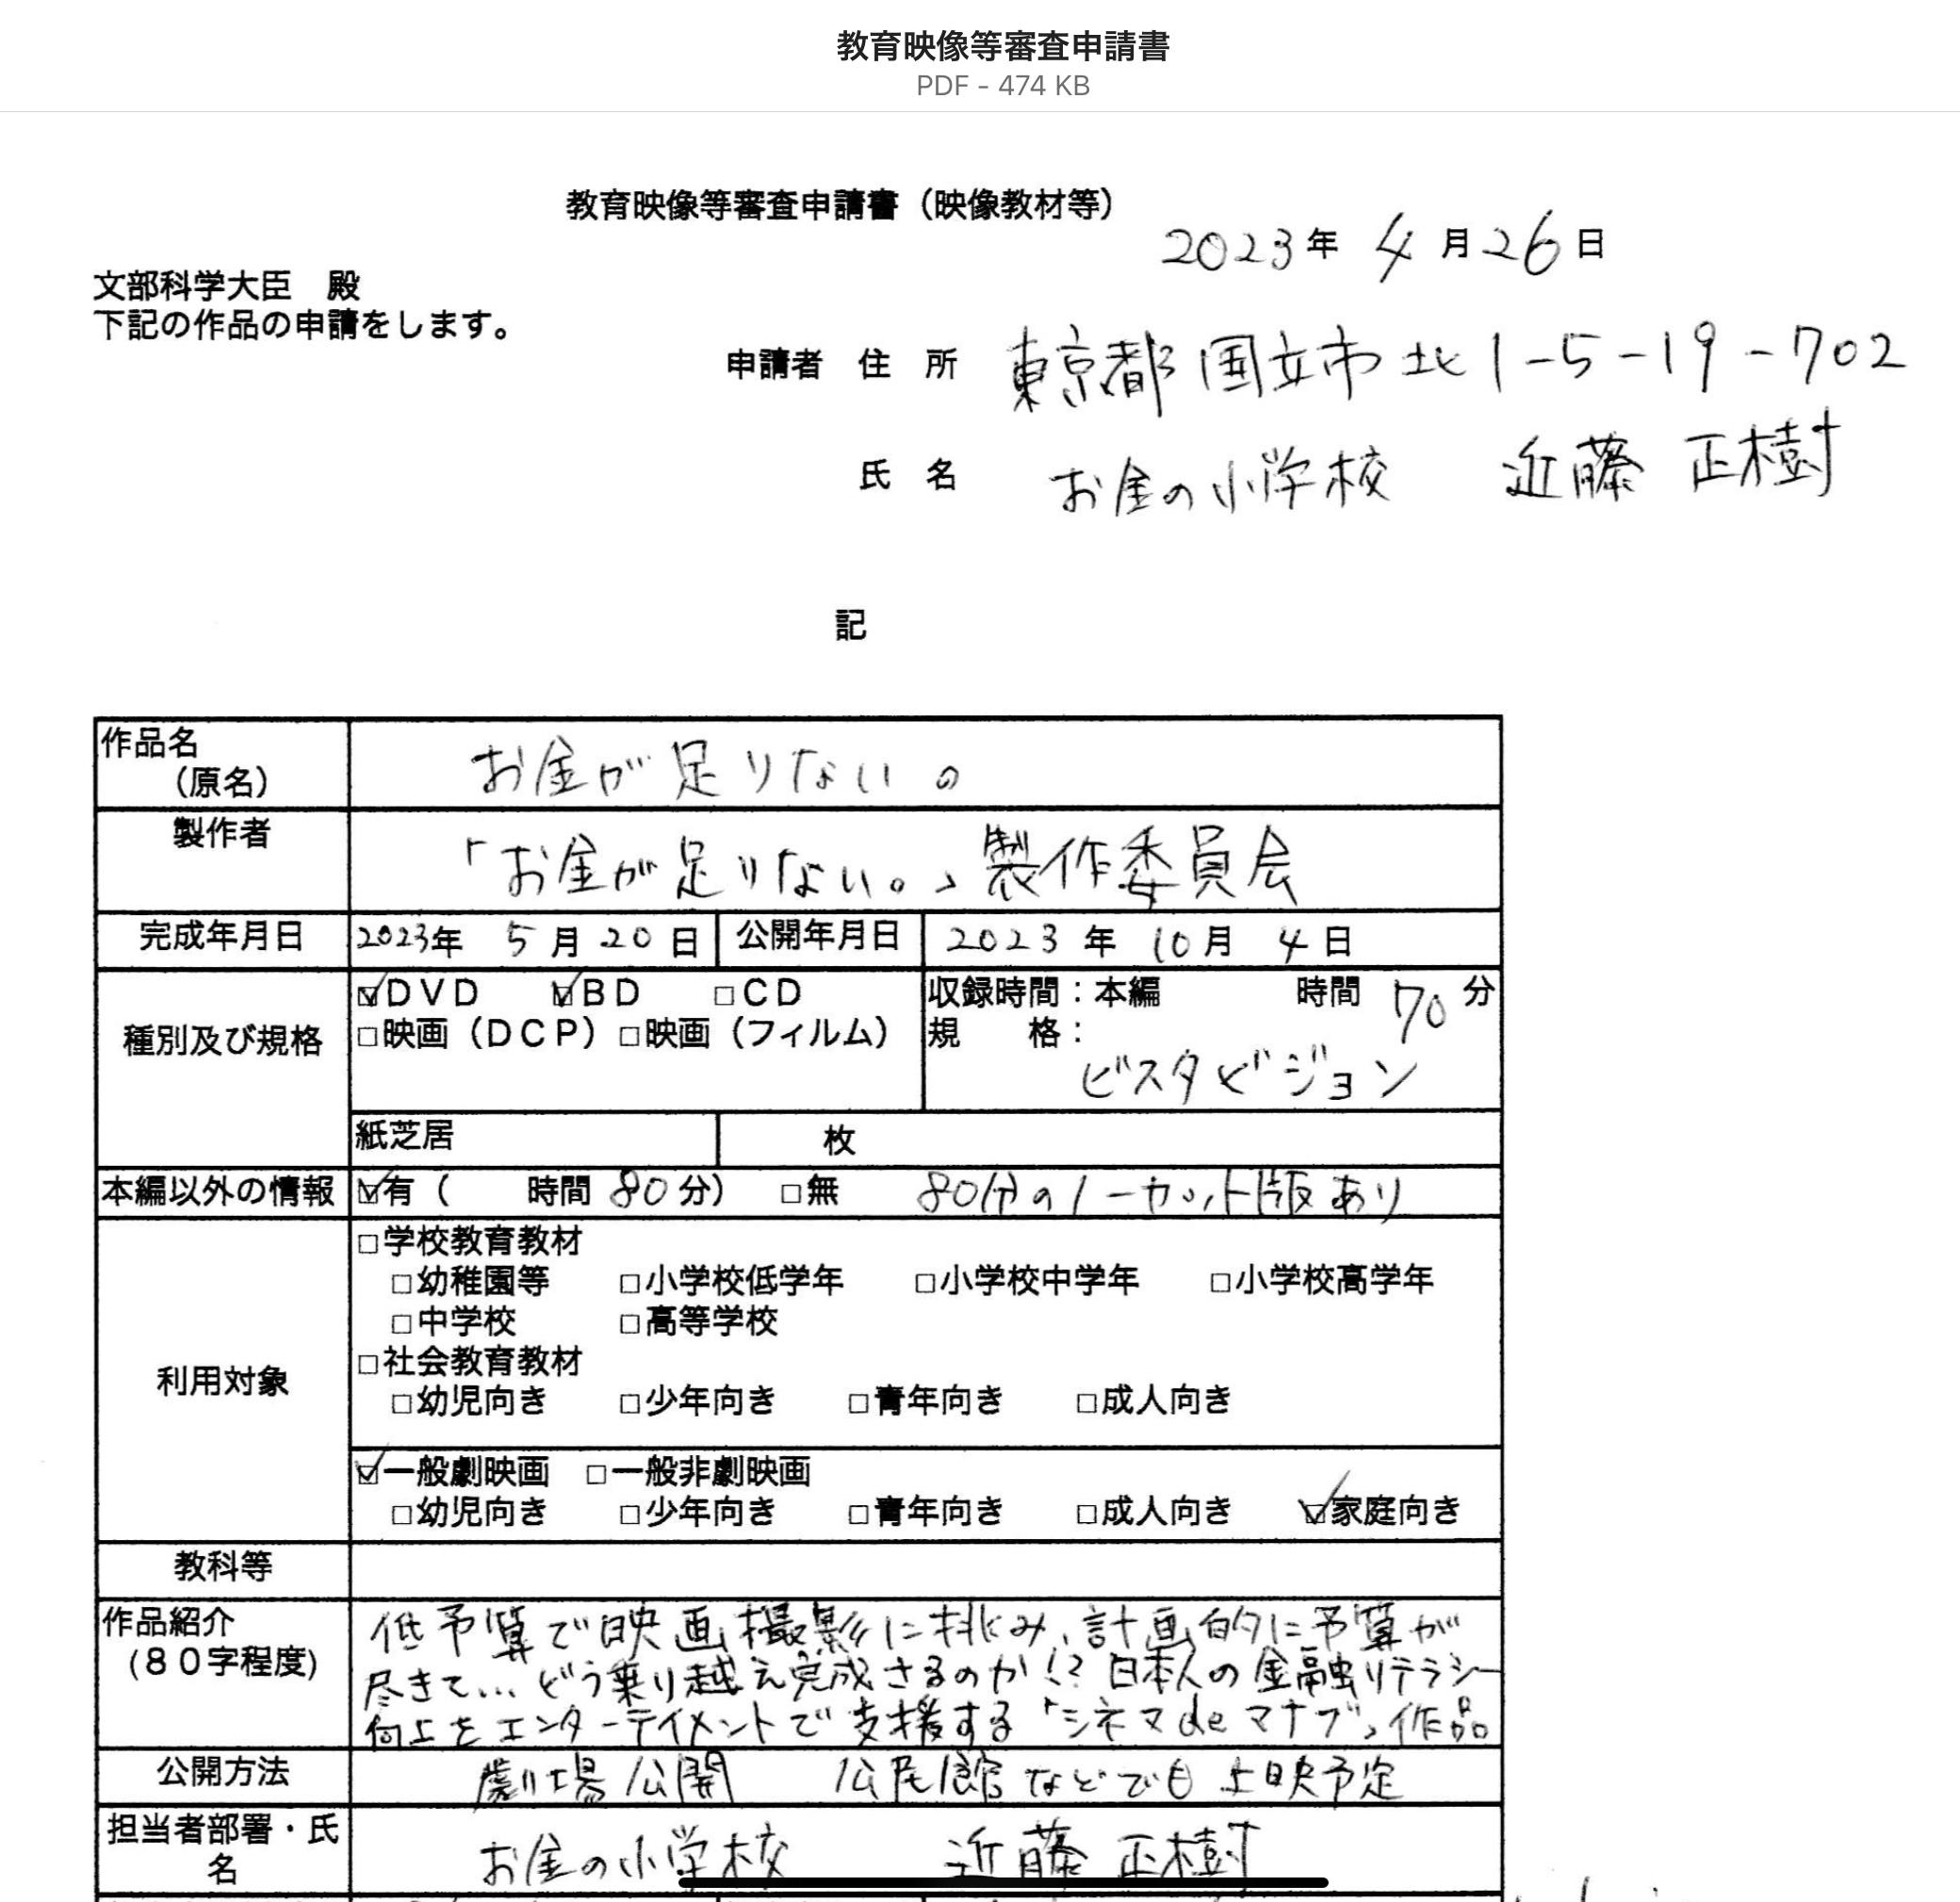 教育映像等審査申請書
PDF - 474 KB
教育映像等審査申請書（映像教材等）
2023年 4月26日
文部科学大臣　殿
下記の作品の申請をします。
申請者　住　所　東京都国立市北1-5-19-702
氏　名　お金の小学校　近藤 正樹
記
作品名
（原名）
お金が足りない。
製作者
「お金が足りない。」製作委員会
完成年月日 2023年 5月20日 公開年月日 2023年 10月 4日
種別及び規格
☑DVD ☑BD □CD
□映画（DCP）□映画（フィルム）
収録時間：本編 時間 70分
規　　格：
ビスタビジョン
紙芝居 枚
本編以外の情報 ☑有（ 時間 80分） □無 80分のノーカット版あり
利用対象
□学校教育教材
□幼稚園等 □小学校低学年 □小学校中学年 □小学校高学年
□中学校 □高等学校
□社会教育教材
□幼児向き □少年向き □青年向き □成人向き
☑一般劇映画 □一般非劇映画
□幼児向き □少年向き □青年向き □成人向き ☑家庭向き
教科等
作品紹介
(８０字程度)
低予算で映画撮影に挑み、計画的に予算が
尽きて…どう乗り越え完成さるのか!? 日本人の金融リテラシー
向上をエンターテイメントで支援する「シネマdeマナブ」作品
公開方法 劇場公開 公民館などでも上映予定
担当者部署・氏
名
お金の小学校 近藤 正樹